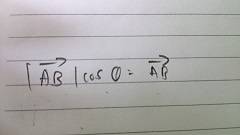 |\overrightarrow{AB}| cos θ = \overrightarrow{AB}